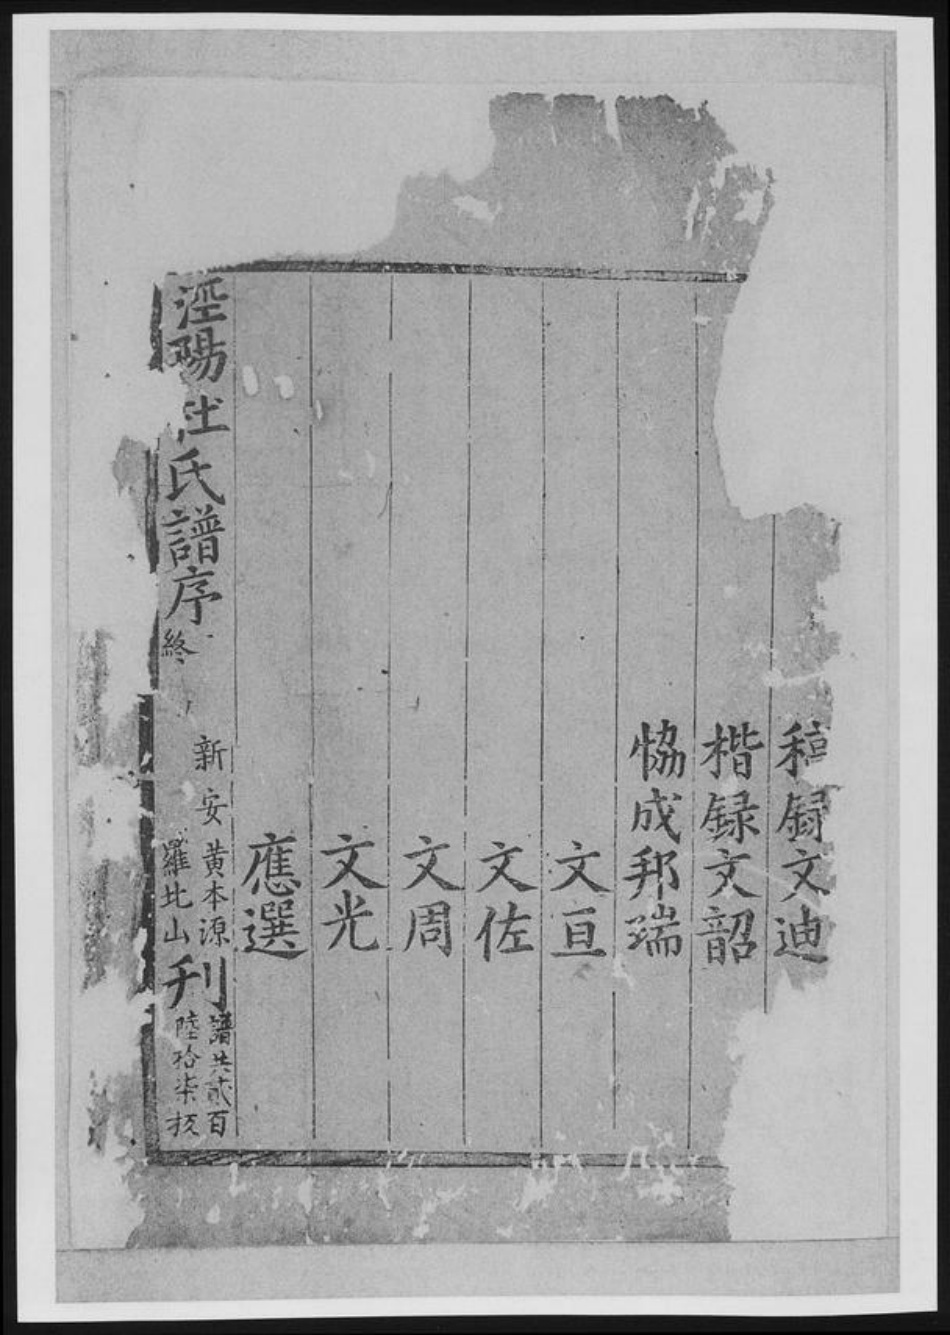 稿録文迪
楷録文韶
恊成邦瑞
文亘
文佐
文周
文光
應選
涇陽杜氏譜序終
新安
黄本源
羅北山
刊
譜共貳百
陸拾柒板